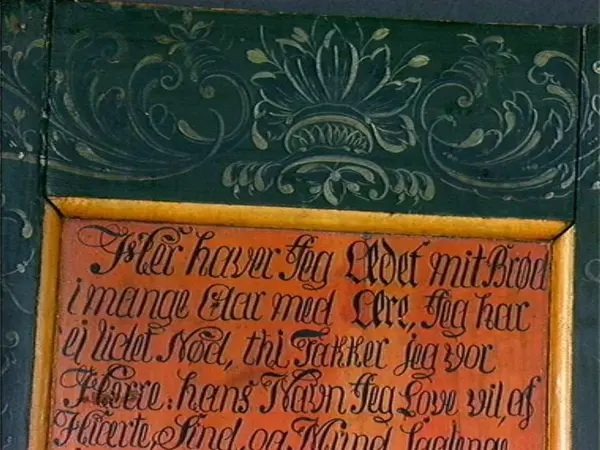 Her haver Jeg Ædet mit Brød
i mange Aar med Ære, Jeg har
ej lidet Nød, thi Takker jeg vor
Herre: hans Navn Jeg Love vil, af
Hierte, Sind, og Mund, saalenge